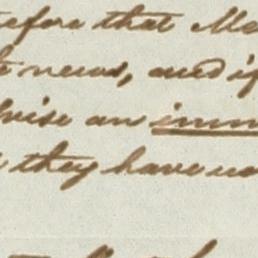 before that Me
news, and if
vise an imm
they have no